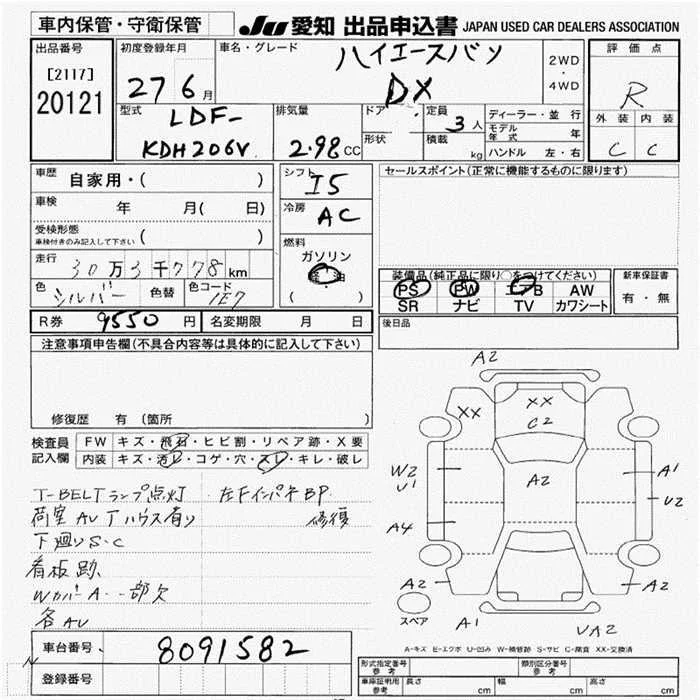 車内保管・守衛保管
JU 愛知 出品申込書 JAPAN USED CAR DEALERS ASSOCIATION
出品番号
[2117]
20121
初度登録年月
27 6 月
車名・グレード
ハイエースバン
DX
2WD
・
4WD
評価点
R
外装 内装
C C
型式
LDF-
KDH206V
排気量
2.98 CC
ドア
形状
定員
3 人
積載
kg
ディーラー・並行
モデル年式 年
ハンドル 左・右
車歴
自家用・( )
車検
年 月( 日)
受検形態
車検付きのみ記入して下さい ( )
走行
30万3千778 km
色
シルバー
色替
色コード
1E7
シフト
I5
冷房
AC
燃料
ガソリン
軽油
( )
セールスポイント(正常に機能するものに限ります)
装備品(純正品に限り○をつけてください)
PS PW エアB AW
SR ナビ TV カワシート
新車保証書
有・無
R券 9550 円 名変期限 月 日
後日品
注意事項申告欄(不具合内容等は具体的に記入して下さい)
修復歴 有(箇所 )
検査員記入欄
FW キズ・飛石・ヒビ割・リペア跡・X要
内装 キズ・汚レ・コゲ・穴・スレ・キレ・破レ
T-BELTランプ点灯 左FインパネBP
修復
荷室AU Tハウス有り
下廻りS・C
看板跡
WカバーA・一部欠
各AU
A2
XX
XX
C2
W2
U1
A2
A1
U2
A4
A2
A2
A1
UA2
スペア
A-キズ E-エクボ U-凹み W-補修跡 S-サビ C-腐食 XX-交換済
車台番号 8091582
登録番号
形式指定番号
参考
類別区分番号
参考
車庫証明用
参考
長さ cm 幅 cm 高さ cm